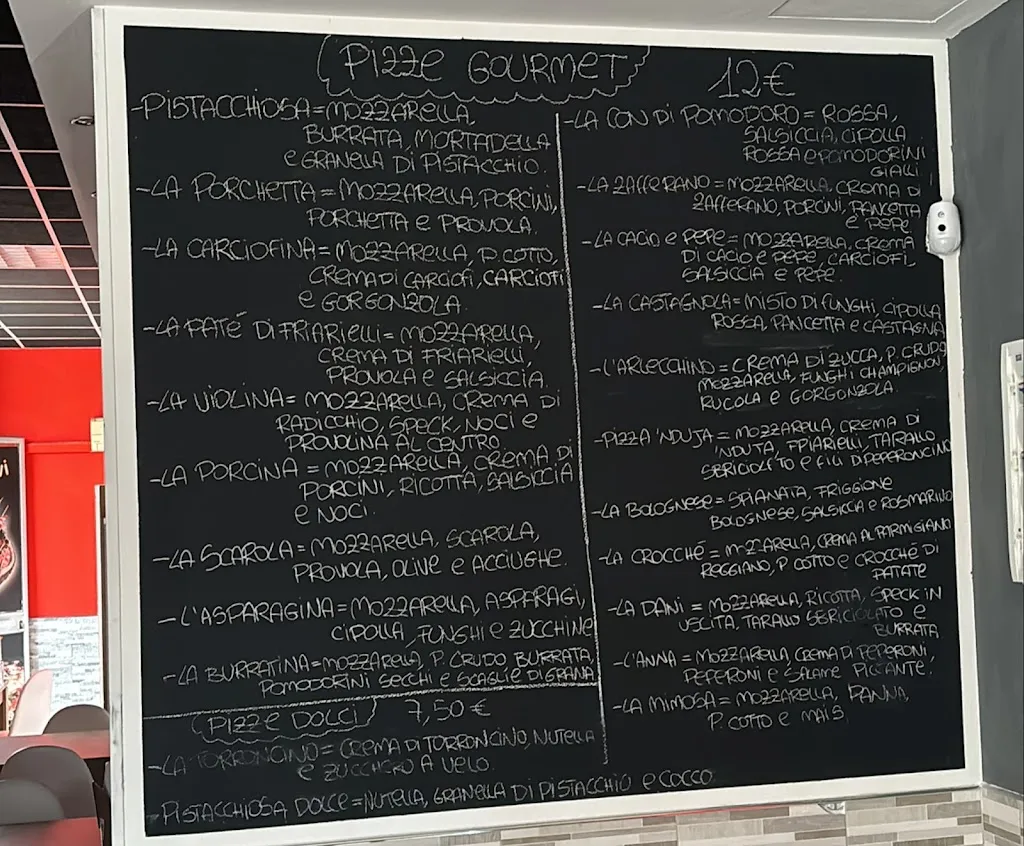 PIZZE GOURMET 12€
-PISTACCHIOSA=MOZZARELLA,
BURRATA, MORTADELLA
e GRANELLA DI PISTACCHIO.
-LA PORCHETTA=MOZZARELLA, PORCINI,
PORCHETTA e PROVOLA.
-LA CARCIOFINA=MOZZARELLA, P. COTTO,
CREMA DI CARCIOFI, CARCIOFI
e GORGONZOLA.
-LA PATÉ DI FRIARIELLI=MOZZARELLA,
CREMA DI FRIARIELLI,
PROVOLA e SALSICCIA.
-LA VIOLINA=MOZZARELLA, CREMA DI
RADICCHIO, SPECK, NOCI e
PROVOLINA AL CENTRO.
-LA PORCINA=MOZZARELLA, CREMA DI
PORCINI, RICOTTA, SALSICCIA
e NOCI.
-LA SCAROLA=MOZZARELLA, SCAROLA,
PROVOLA, OLIVE e ACCIUGHE.
-L'ASPARAGINA=MOZZARELLA, ASPARAGI,
CIPOLLA, FUNGHI e ZUCCHINE
-LA BURRATINA=MOZZARELLA, P. CRUDO, BURRATA,
POMODORINI SECCHI e SCAGLIE DI GRANA
-LA CON DI POMODORO=ROSSA,
SALSICCIA, CIPOLLA
ROSSA e POMODORINI
GIALLI
-LA ZAFFERANO=MOZZARELLA, CREMA DI
ZAFFERANO, PORCINI, PANCETTA
e PEPE
-LA CACIO e PEPE=MOZZARELLA, CREMA
DI CACIO e PEPE, CARCIOFI,
SALSICCIA e PEPE.
-LA CASTAGNOLA=MISTO DI FUNGHI, CIPOLLA
ROSSA, PANCETTA e CASTAGNA
-L'ARLECCHINO=CREMA DI ZUCCA, P. CRUDO,
MOZZARELLA, FUNGHI CHAMPIGNON,
RUCOLA e GORGONZOLA.
-PIZZA 'NDUJA=MOZZARELLA, CREMA DI
'NDUTA, FRIARIELLI, TARALLO
SBRICIOLATO e FILI DI PEPERONCINO
-LA BOLOGNESE=SPIANATA, FRIGGIONE
BOLOGNESE, SALSICCIA e ROSMARINO
-LA CROCCHÉ=MOZZARELLA, CREMA AL PARMIGIANO
REGGIANO, P COTTO e CROCCHÉ DI
PATATE
-LA DANI=MOZZARELLA, RICOTTA, SPECK IN
USCITA, TARALLO SBRICIOLATO e
BURRATA
-L'ANNA=MOZZARELLA CREMA DI PEPERONI,
PEPERONI e SALAME PICCANTE.
-LA MIMOSA=MOZZARELLA, PANNA,
P. COTTO e MAIS.
PIZZE DOLCI 7,50€
-LA TORRONCINO=CREMA DI TORRONCINO, NUTELLA
e ZUCCHERO A VELO.
-PISTACCHIOSA DOLCE=NUTELLA, GRANELLA DI PISTACCHIO e COCCO